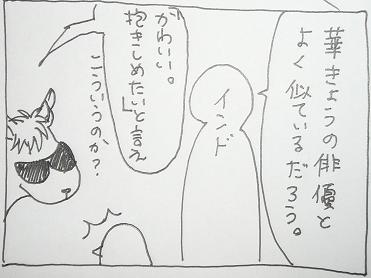 華きょうの俳優と
よく似ているだろう。
インド
「かわいい。
抱きしめたいと言え」
こういうのか?